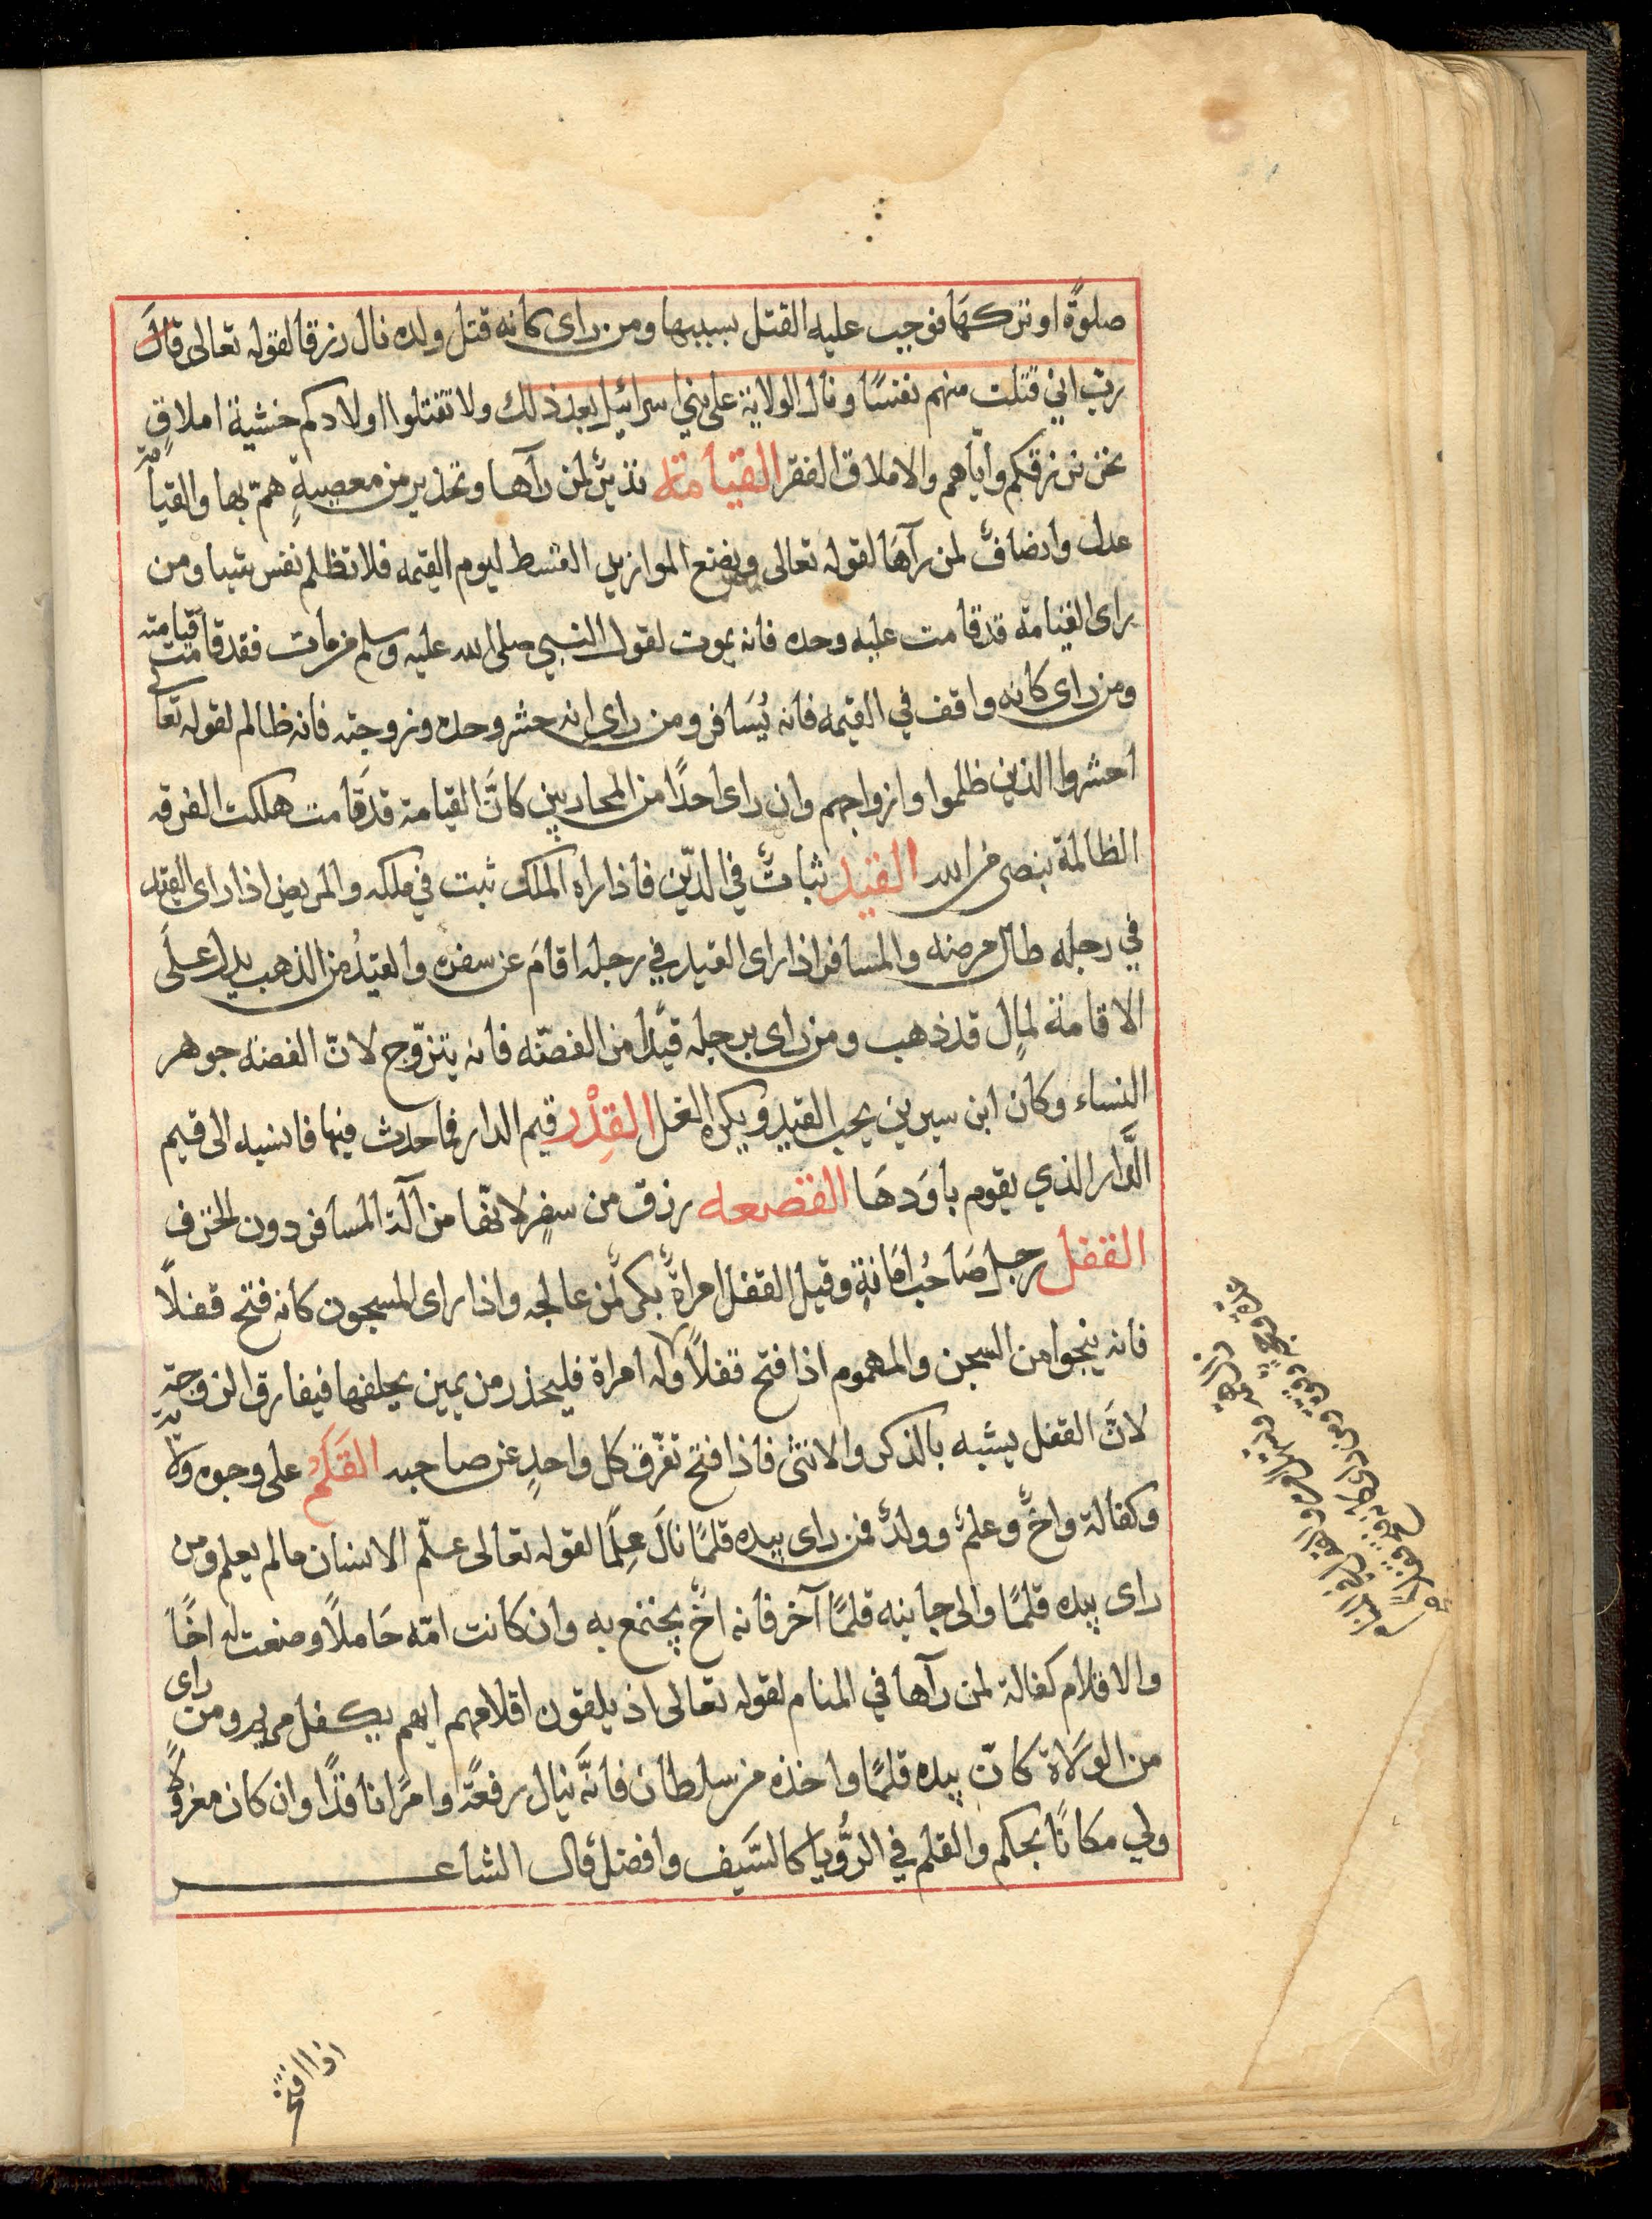 صلوةً او تركهَا فوجب عليه القتل بسببها ومن راى كانه قتل ولده نال رزقا لقوله تعالى قال
رب انى قتلت منهم نفسًا ونال الولاية على بني اسرائيل بعد ذلك ولا تقتلوا اولادكم خشية املاقٍ
نحن نرزقكم واياهم والاملاق الفقر القيامة نذيرٌ لمن رآها وتحذير من معصيةٍ همّ بها والقيامة
عدل وانصافٌ لمن رآهَا لقوله تعالى ونضع الموازين القسط ليوم القيمه فلا تظلم نفس شيا ومن
راى القيامة قد قامت عليه وحده فانه يموت لقول النبي صلى الله عليه وسلم من مات فقد قامت قيامته
ومن راى كانه واقف في القيمه فانه يُسَافر ومن راى انه حشر وحده وزوجته فانه ظالم لقوله تعالى
احشروا الذين ظلموا وازواجهم وان راى احدًا من المحاربين كانَّ القيامة قد قَامت هلكت الفرقه
الظالمة بنصر من الله القيد ثباتٌ في الدّين فاذا راه الملك ثبت في ملكه والمريض اذا راى القيد
في رجله طال مرضه والمسافر اذا راى القيد في رجله اقامَ عن سفره والقيدُ من الذهب يدل علَى
الاقامة لمالٍ قد ذهب ومن راى برجله قيدًا من الفضّه فانه يتزوّج لانّ الفضه جوهر
النساء وكان ابن سيرين يحب القيد ويكره الغل القِدْر قيم الدار فما حدث فيها فانسبه الى قيم
الدَّار الذي يقوم باوَدهَا القصعه رزق من سفرٍ لانّها من آلة المسافر دون الخزف
القفل رجل صَاحُب امَانةٍ وقيل القفل امراةٌ بكرٌ لمن عالجه واذا راى المسجون كانه فتح قفلًا
فانه ينجوا من السجن والمهموم اذا فتح قفلًا وله امراة فليحذر من يمين يحلفها فيفارق الزوجةِ
لانَّ القفل يشبه بالذكر والانثى فاذا فتح تفرّق كل واحدٍ عن صاحبه القَلَم على وجوه ولاية
وكفالة واخٌ وعلمٌ وولدٌ فمن راى بيده قلمًا نالَ عِلمًا لقوله تعالى علّم الانسان مالم يعلم ومن
راى بيده قلمًا والى جانبه قلمًا آخر فانه اخٌ يجتمع به وان كانت امّه حَاملًا وضعت له اخًا
والاقلام كفالة لمن رآها في المنام لقوله تعالى اذ يلقون اقلامهم ايهم يكفل مريم ومن راى
من الولَاة كانّ بيده قلمًا واخذه من سلطان فانَّه ينال رفعةً وامرًا نافذًا وان كان معزولًا
ولي مكانًا يحكم والقلم في الرُّويا كالسَّيف وافضل قال الشاعر
اذا افتخر